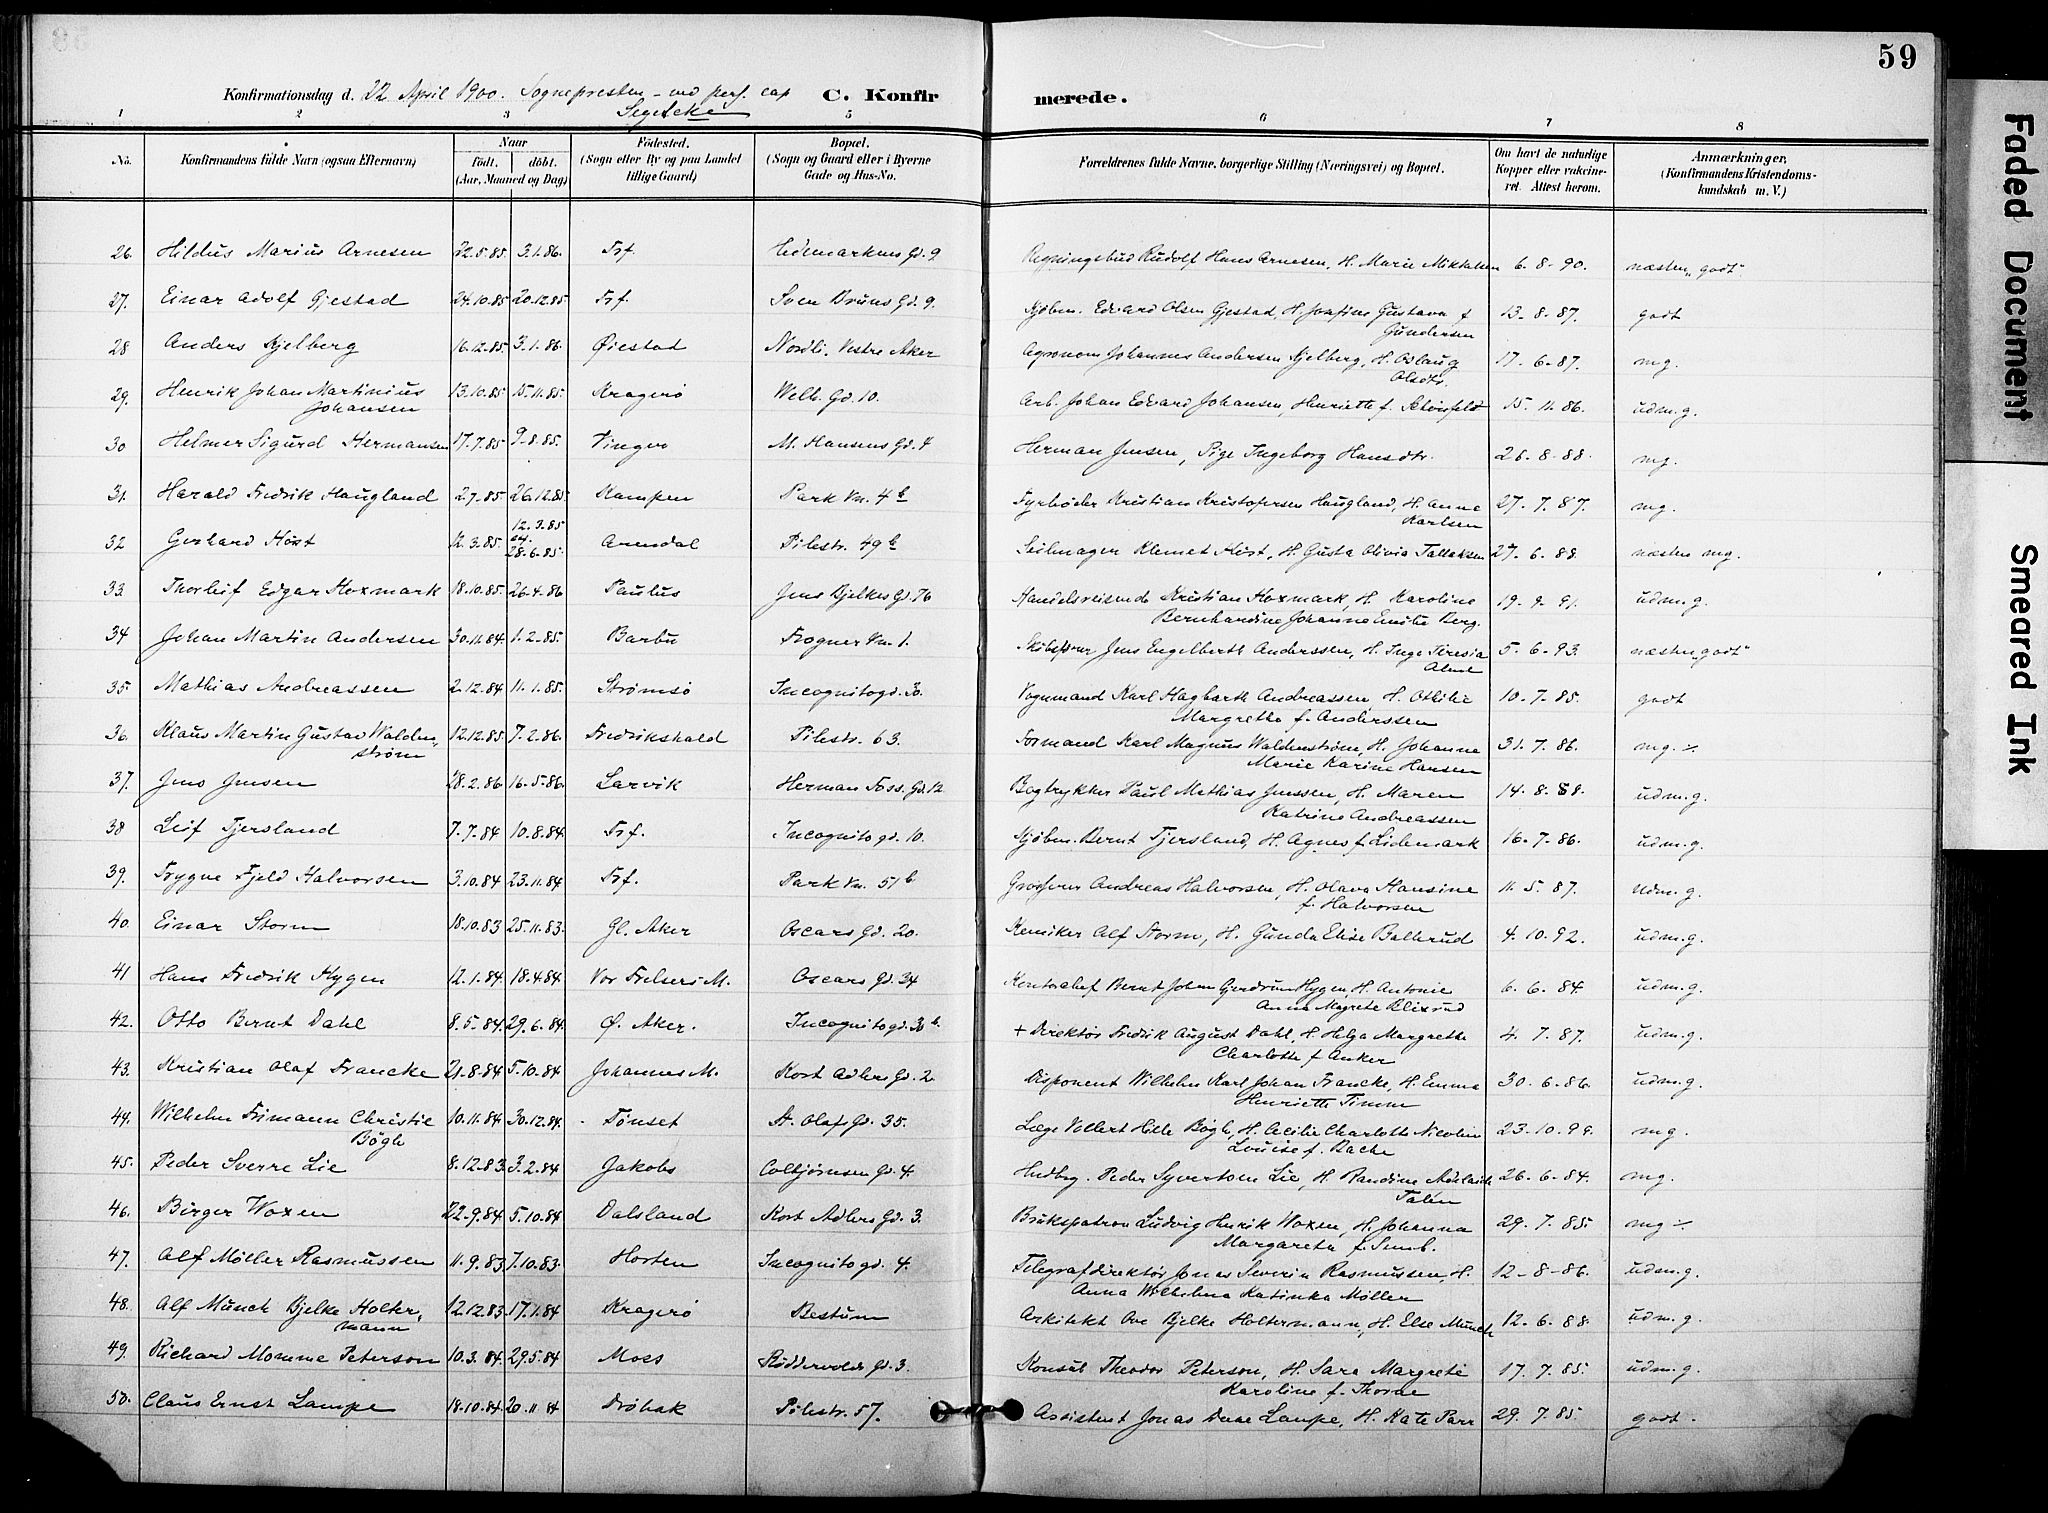 59
Konfirmationsdag d. 22 April 1900. Sognepresten - ved pers. cap C. Konfirmerede.
Segelcke
1 2 3 5 6 7 8
No. Konfirmandens fulde Navn (ogsaa Efternavn) Naar født. døbt. (Aar, Maaned og Dag) Fødested. (Sogn eller By og paa Landet tillige Gaard) Bopæl. (Sogn og Gaard eller i Byerne Gade og Hus-No. Forældrenes fulde Navne, borgerlige Stilling (Næringsvei) og Bopæl. Om havt de naturlige Kopper eller vakcineret. Attest herom. Anmærkninger, (Konfirmandens Kristendomskundskab m. V.)
26. Hildus Marius Arnesen 22.5.85 3.1.86. Trf. Hedemarkens Gd. 9 Regningsbud Rudolf Hans Arnesen, H. Marie Mikkelsen 6-8-90. næsten "godt"
27. Einar Adolf Gjestad 24.10.85 20.12.85 Trf. Sven Bruns Gd. 9. Kjøbm. Edvard Olsen Gjestad, H. Josefine Gustava f
Gundersen 13-8-87. godt
28 Anders Kjelberg 16.12.85 3.1.86 Øiestad Nordli. Vestre Aker Agronom Johannes Andersen Kjelberg, H. Aslaug
Olsdtr. 17-6-87. mg.
29. Henrik Johan Martinius
Johansen 13.10.85 15.11.85. Kragerø Welh. Gd. 10. Arb. Johan Edvard Johansen, Henriette f. 15-11.86. udm.g.
30 Helmer Sigurd Hermansen 17.7.85 9.8.85. Vinger M. Hansens Gd. 4 Herman Jensen, Pige Ingeborg Hansdtr. 26-8-88. mg.
31. Harald Fredrik Haugland 2.7.85 26.12.85 Kampen Park Vn. 4b Fyrbøder Kristian Kristofersen Haugland, H. Anne
Karlsen 27.7.87. mg.
32 Gerhard Høst 12.3.85. 12.3.85
28.6.85. Arendal Pilestr. 49b Seilmager Klemet Høst, H. Gusta Olivia Tallaksen 27-6-88. næsten mg.
33. Thorleif Edgar Hoxmark 18.10.85. 26.4.86 Paulus Jens Bjelkes Gd. 76 Handelsreisende Kristian Hoxmark, H. Karoline
Bernhardine Johanne Emilie Berg. 19-9-91. udm.g.
34 Johan Martin Andersen 30.11.84 1.2.85. Barbu Frogner Vn. 1. Skibsfører Jens Engelberth Anderssen, H. Inge Teresia 5-6-93. næsten "godt"
35. Mathias Andreassen 2.12.84 11.1.85. Strømsø Incognitogd. 30. Vognmand Karl Hagbarth Andreassen, H. Othilie
Margrethe f. Anderssen 10.7.85. godt
36. Klaus Martin Gustav Walden-
strøm 12.12.85 7.2.86. Fredrikshald Pilestr. 63. Formand Karl Magnus Waldenstrøm, H. Johanne
Marie Karine Hansen 31.7.86. mg. ÷
37. Jens Jensen 28.2.86 16.5.86 Larvik Herman Foss. Gd. 12 Bogtrykker Paul Mathias Jenssen, H. Maren
Katrine Andreassen 14.8.88. udm.g.
38 Leif Tjersland 7.7.84 10.8.84. Trf. Incognito gd. 10. Kjøbm. Bernt Tjersland, H. Agnes f. Lidemark 16.7.86. udm.g.
39. Trygve Fjeld Halvorsen 3.10.84 23.11.84 Trf. Park Vn. 51b Grosserer Andreas Halvorsen, H. Olava Hansine
f. Halvorsen 11.5.87. udm.g.
40. Einar Storm 18.10.83 25.11.83. Gl. Aker Oscars Gd. 20. Kemiker Alf Storm, H. Gunda Elise Ballerud 4.10.92. udm.g.
41 Hans Fredrik Hygen 12.1.84. 18.4.84. Vor Frelsers M. Oscars Gd. 34 Kontorchef Bernt Johan Gerdrum Hygen, H. Antonie
Anna Magrete Blixrud 6.6.84. udm.g.
42. Otto Bernt Dahl 8.5.84. 29.6.84. Ø. Aker. Incognitogd. 30b. + Direktør Fredrik August Dahl, H. Helga Margrethe
Charlotte f. Anker 4.7.87. udm.g.
43. Kristian Olaf Francke 21.8.84 5.10.84 Johannes M. Kort Adlers Gd. 2. Disponent Wilhelm Karl Johan Francke, H. Emma
Henriette Timm 30.6.86. udm.g.
44. Wilhelm Frimann Christie
Bøgh 10.11.84 30.12.84. Tønset St. Olafs Gd. 35. Læge Vollert Hille Bøgh, H. Cecilie Charlotte Nicoline
Louise f. Bache 23.10.99. mg.
45. Peder Sverre Lie 8.12.83. 3.2.84 Jakobs Colbjørnsen Gd. 4. Hudbrg. Peder Syvertsen Lie, H. Randine Adelaide
Talén 26-6-84. mg.
46. Birger Woxen 22-9.84 5.10.84 Dalsland Kort Adlers Gd. 3. Brukspatron Ludvig Henrik Woxen, H. Johanna
Margareta f. Semb. 29.7.85. mg ÷
47. Alf Møller Rasmussen 11.9.83 7.10.83. Horten Incognitogd. 4. Telegrafdirektør Jonas Severin Rasmussen, H.
Anna Wilhelmina Katinka Møller 12-8-86. udm.g.
48. Alf Munch Bjelke Holter-
mann 12.12.83. 17.1.84 Kragerø Bestum Arkitekt Ove Bjelke Holtermann, H. Else Munch 12.6.88. udm.g.
49. Richard Momme Peterson 10.3.84. 29.5.84 Moss Riddervolds Gd. 3. Konsul Theodor Peterson, H. Sara Margrete
Karoline f. Thorne 17.7.85. udm.g.
50. Claus Ernst Lampe 18.10.84. 20.11.84 Drøbak Pilestr. 57. Assistent Jonas Dene Lampe, H. Kate Parr 29.7.85. godt.
Faded Document
Smeared Ink